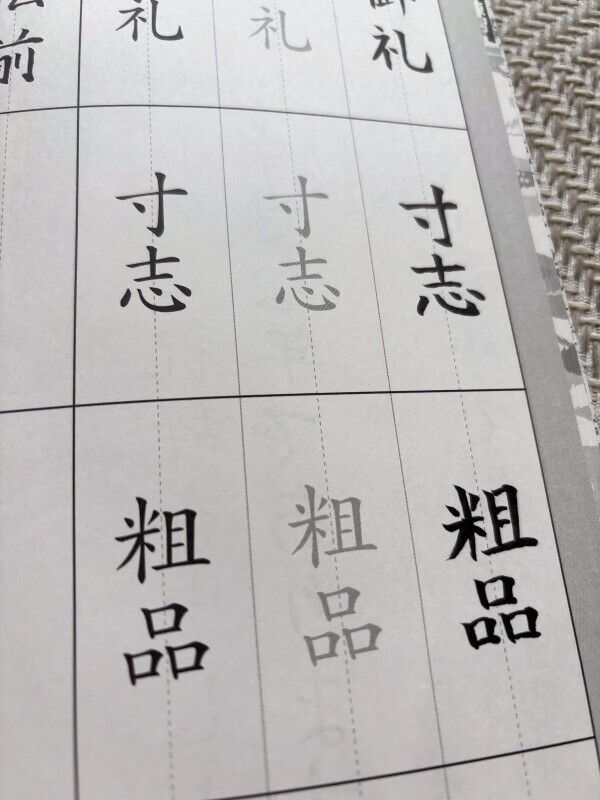 礼
礼
礼
寸志
寸志
寸志
粗品
粗品
粗品
前